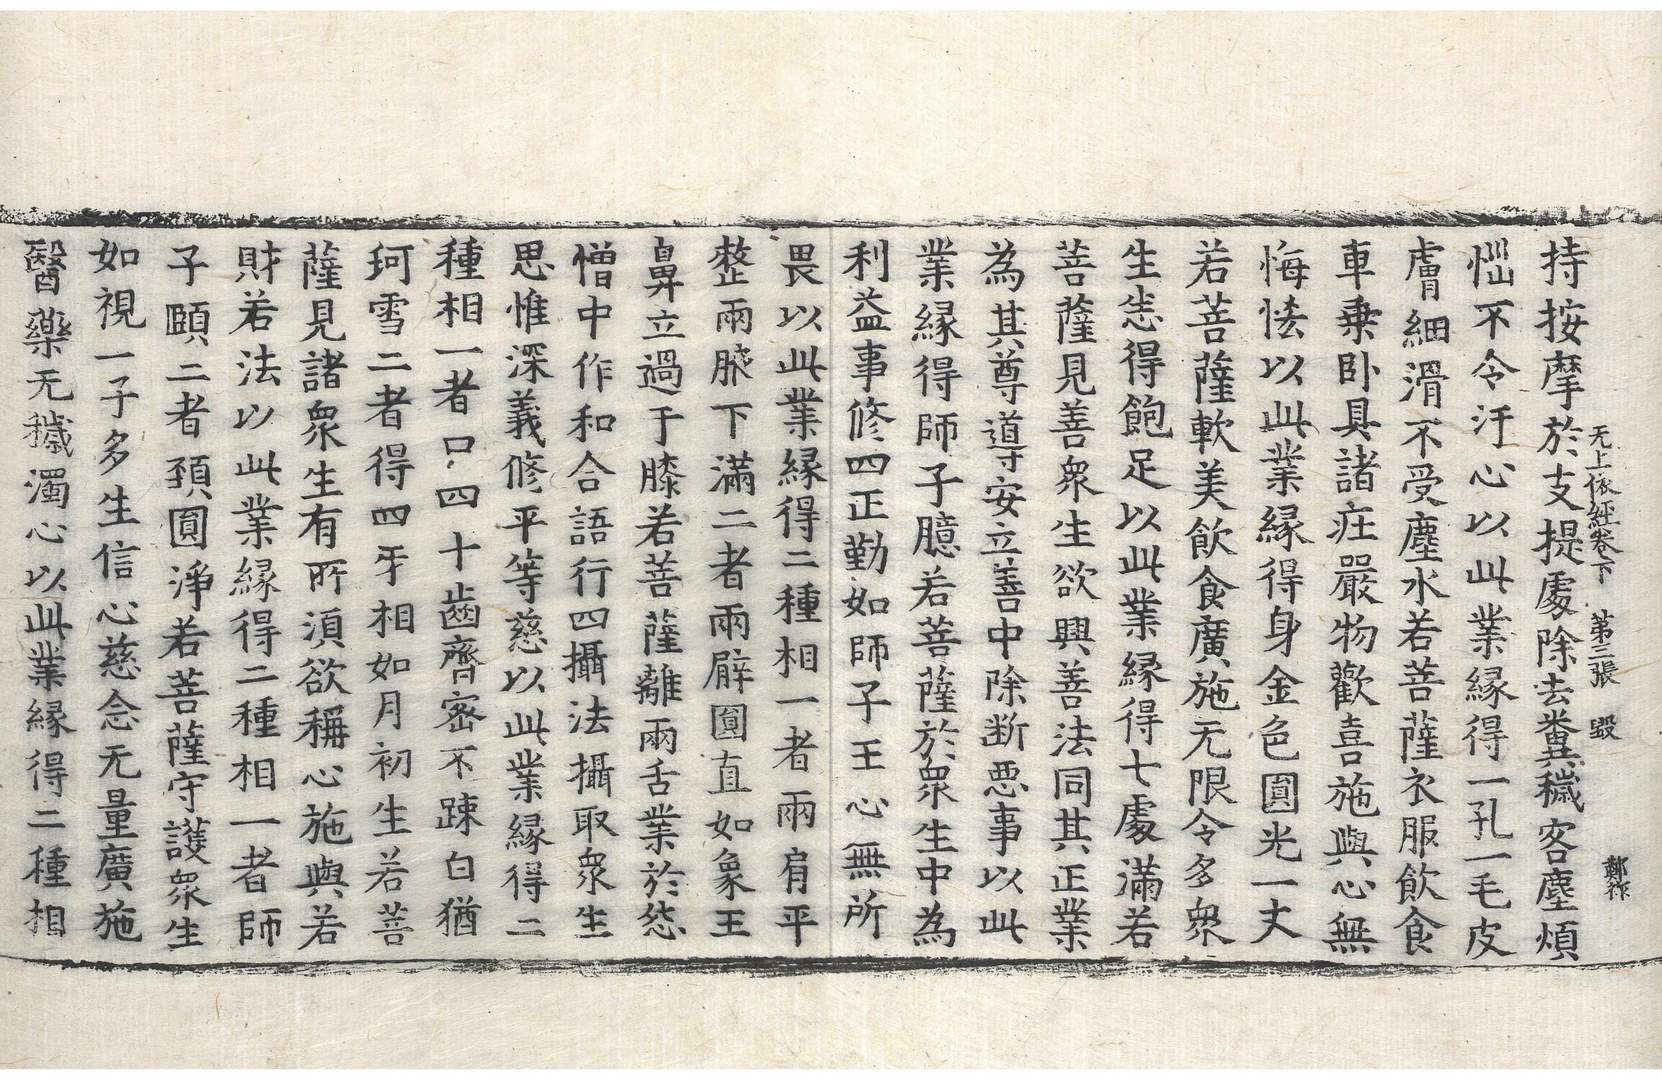 持按摩於支提處除去糞穢客塵煩
惱不令汙心以此業緣得一孔一毛皮
膚細滑不受塵水若菩薩衣服飲食
車乗卧具諸莊嚴物歡喜施與心無
悔恡以此業緣得身金色圓光一丈
若菩薩軟美飲食廣施无限令多衆
生恣得飽足以此業緣得七處滿若
菩薩見善衆生欲興善法同其正業
為其尊導安立善中除断惡事以此
業緣得師子臆若菩薩於衆生中為
利益事修四正勤如師子王心無所
畏以此業緣得二種相一者兩肩平
整兩腋下滿二者兩臂圓直如象王
鼻立過于膝若菩薩離兩舌業於怨
憎中作和合語行四攝法攝取衆生
思惟深義修平等慈以此業緣得二
種相一者口四十齒齊密不踈白猶
珂雪二者得四牙相如月初生若菩
薩見諸衆生有所湏欲稱心施與若
財若法以此業緣得二種相一者師
子頤二者頚圓淨若菩薩守護衆生
如視一子多生信心慈念无量廣施
醫藥无穢濁心以此業緣得二種相
无上依經卷下 第三張 毀 鄭祚